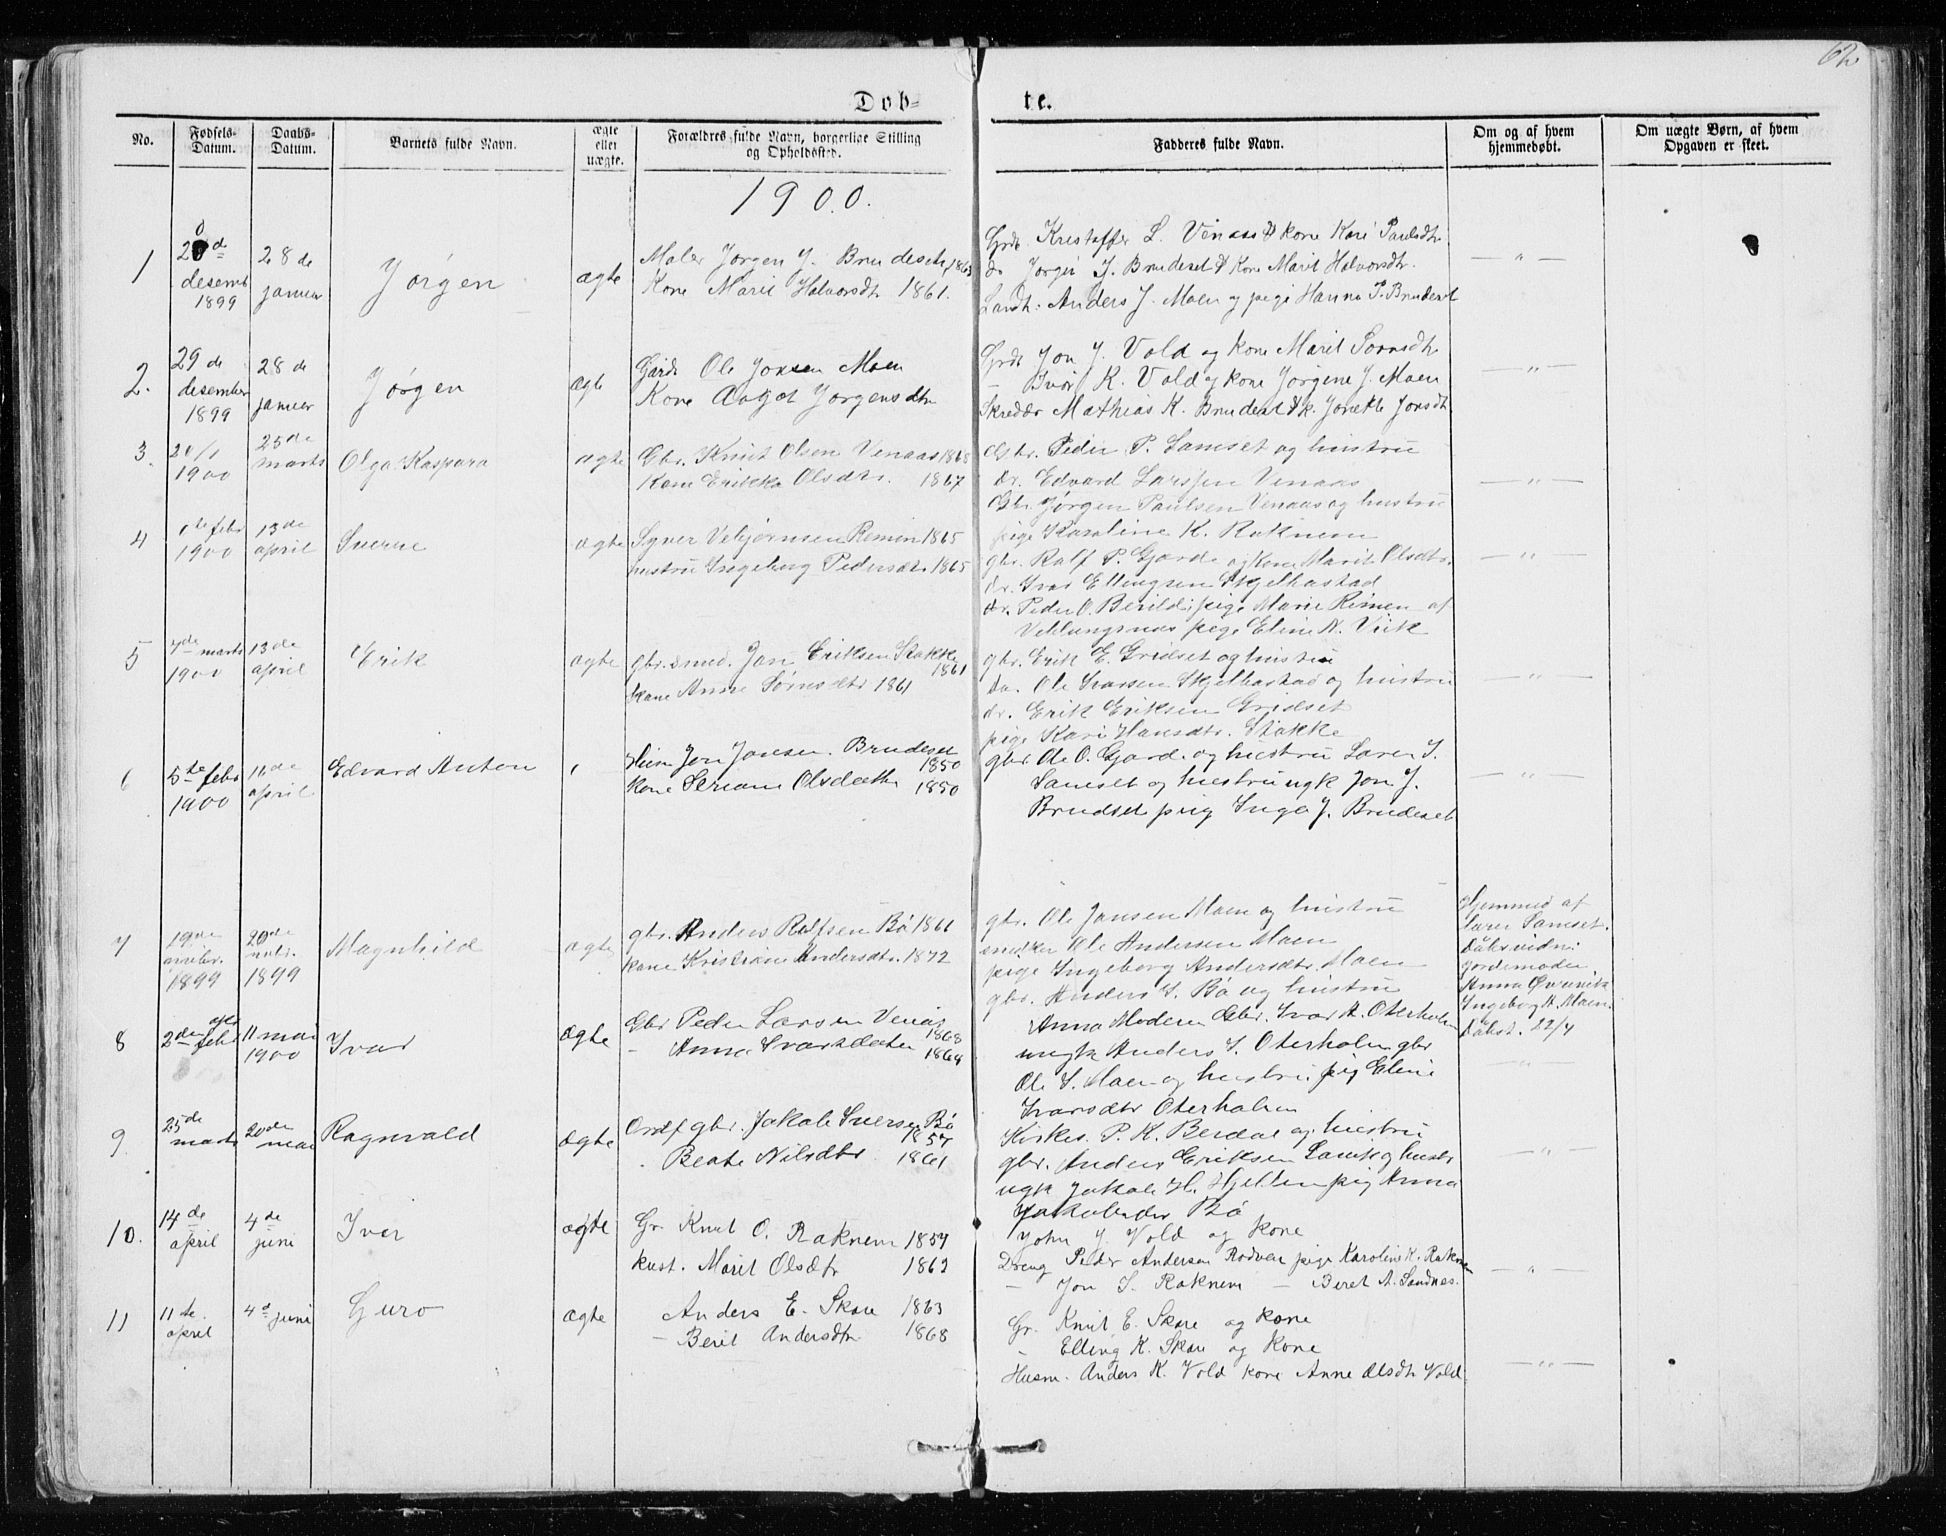 62
Døb-
te.
No.
Fødsels-
Datum.
Daabs-
Datum.
Barnets fulde Navn.
ægte
eller
uægte.
Forældres fulde Navn, borgerlige Stilling
og Opholdssted.
Faddernes fulde Navn.
Om og af hvem
hjemmedøbt.
Om uægte Børn, af hvem
Opgaven er skeet.
1900.
1
desembr
1899
28 de
januar
Jørgen
ægte
Maler Jørgen J. Brudeset 1863
Kone Marit Halvorsdtr 1861.
Grdb Kristoffer L. Venaas & kone Kari Paulsdtr
do Jørgen J. Brudeset & Kone Marit Halvorsdtr.
Landh. Anders J. Moen og pige Hanna P. Brudeset
— " —
2.
29 de
desember
1899
28 de
januar
Jørgen
ægte
Gårdb Ole Jonsen Moen
Kone Jørgensdtr
Grdb Jon J. Vold og kone Marit
— Ivar K. Vold og kone Jørgene J. Moen
Skredder Mathias K. Brudeset & k. Jonette Jonsdtr
— " —
3.
20/1
1900
25 de
marts
Olga Kaspara
ægte
Gbr. Knut Olsen Venaas 1868
Kone Erikka Olsdtr. 1867
Gbr. Peder P. Samset og hustru
dr. Edvard Larssen Venaas
Gbr. Jørgen Paulsen Venaas og hustru
pige Karoline K. Raknem
— " —
4
1ste febr
1900
13 de
april
Sverre
ægte
Syver Vebjørnsen Remin 1865
hustru Ingeborg Pedersdtr 1865
gbr. Ralf P. Gjarde og Kone Marit Olsdtr.
dr. Ivar Ellingsen Skjelbostad
dr. Peder O. Berild; pige Marie Rimen af
Veblungsnas pige Eline N. Viik
— " —
5
7de marts
1900
13 de
april
Erik
ægte
gbr. smed. Jon Eriksen Stokke
1861
kone Anne Sørensdtr 1861
gbr. Erik E. Gridset og hustru
do. Ole Larssen Skjelbostad og hustru
dr. Erik Eriksen Gridset
pige Kari Hansdtr. Stokke
— " —
6
5te febr
1900
16 de
april
Edvard Anton
Jon Jonsen. Brudeset
1850
kone Seriane Olsdatter 1850
gbr Ole O. Gjarde. og hustru Laren S.
Samset og hustru ugk Jon J.
Brudset pig Inga J. Brudeset
— " —
7
19de
novbr.
1899
20de
novbr.
1899
Magnhild
ægte
gbr. Anders Ralfsen Bø 1861
kone Kristiane Andersdtr. 1872
gbr. Ole Jansen Moen og hustru
snedker Ole Andersen Moen
pige Ingeborg Andersdtr. Moen
gbr. Anders S. Bø og hustru
Hjemmed af
lærer Samset.
Dåbsvidni:
jordemoder
Anna
Ingeborg A. Moen.
Dåbst. 22/4
8
2den febr
11 mai
1900
Ivar
ægte
Gbr Peder Larsen Venås
1868
— Anna Ivarsdatter 1864
Anna Moderen Gbr. Ivar A. Oterholm
ungk Anders I. Oterholm gbr
Ole S. Moen og hustru pig Eline
Ivarsdtr Oterholm
— " —
9
25de
marts
20de
mai
Ragnvald
ægte
Ordf gbr. Jakob Sversen Bø
1857
Beate Nilsdtr 1861
Kirkes. P. K. Berdal og hustru
gbr. Anders Eriksen og hustr
ugk Jakob H. Hjelten pig Anna
Jakobsdtr Bø
— " —
10.
14 de
april
4 de
juni
Ivar
ægte
Gr. Knut O. Raknem 1857
hust. Marit Olsdtr 1862
John J. Vold og kone
Dreng Peder Andersen Rødven pige Karoline K. Raknem
— Jon S. Raknem — Beret A. Sandnes.
— " —
11
11 te.
april
4 d juni
Guro
ægte
Anders E. Skare 1863
— Berit Andersdtr 1868
Gr. Knut E. Skare og kone
— Elling K. Skare og kone
Husm. Anders K. Vold kone Anne Olsdtr Vold
— " —